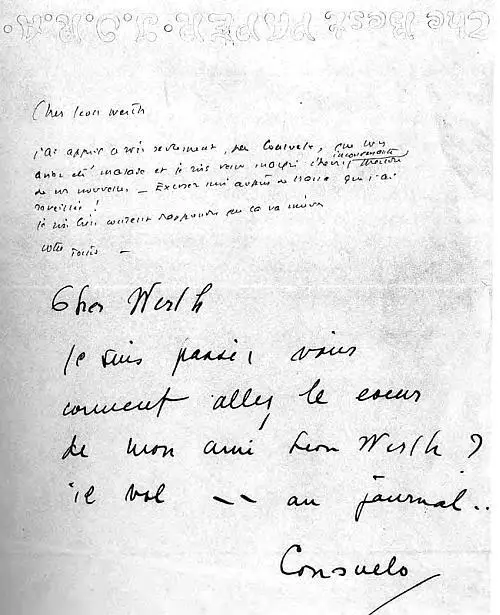 Cher Leon Werth
j'ai appris ce soir seulement, par Consuelo, que vous
avez été malade et je suis venu malgré l'heure inconvenante
de vos nouvelles — Excusez moi auprès de que j'ai
réveillée !
je suis bien content d'apprendre que ça va mieux
votre Tonio —
Cher Werth
je suis passée
comment allez le coeur
de mon ami Leon Werth ?
il vol -- au journal..
Consuelo